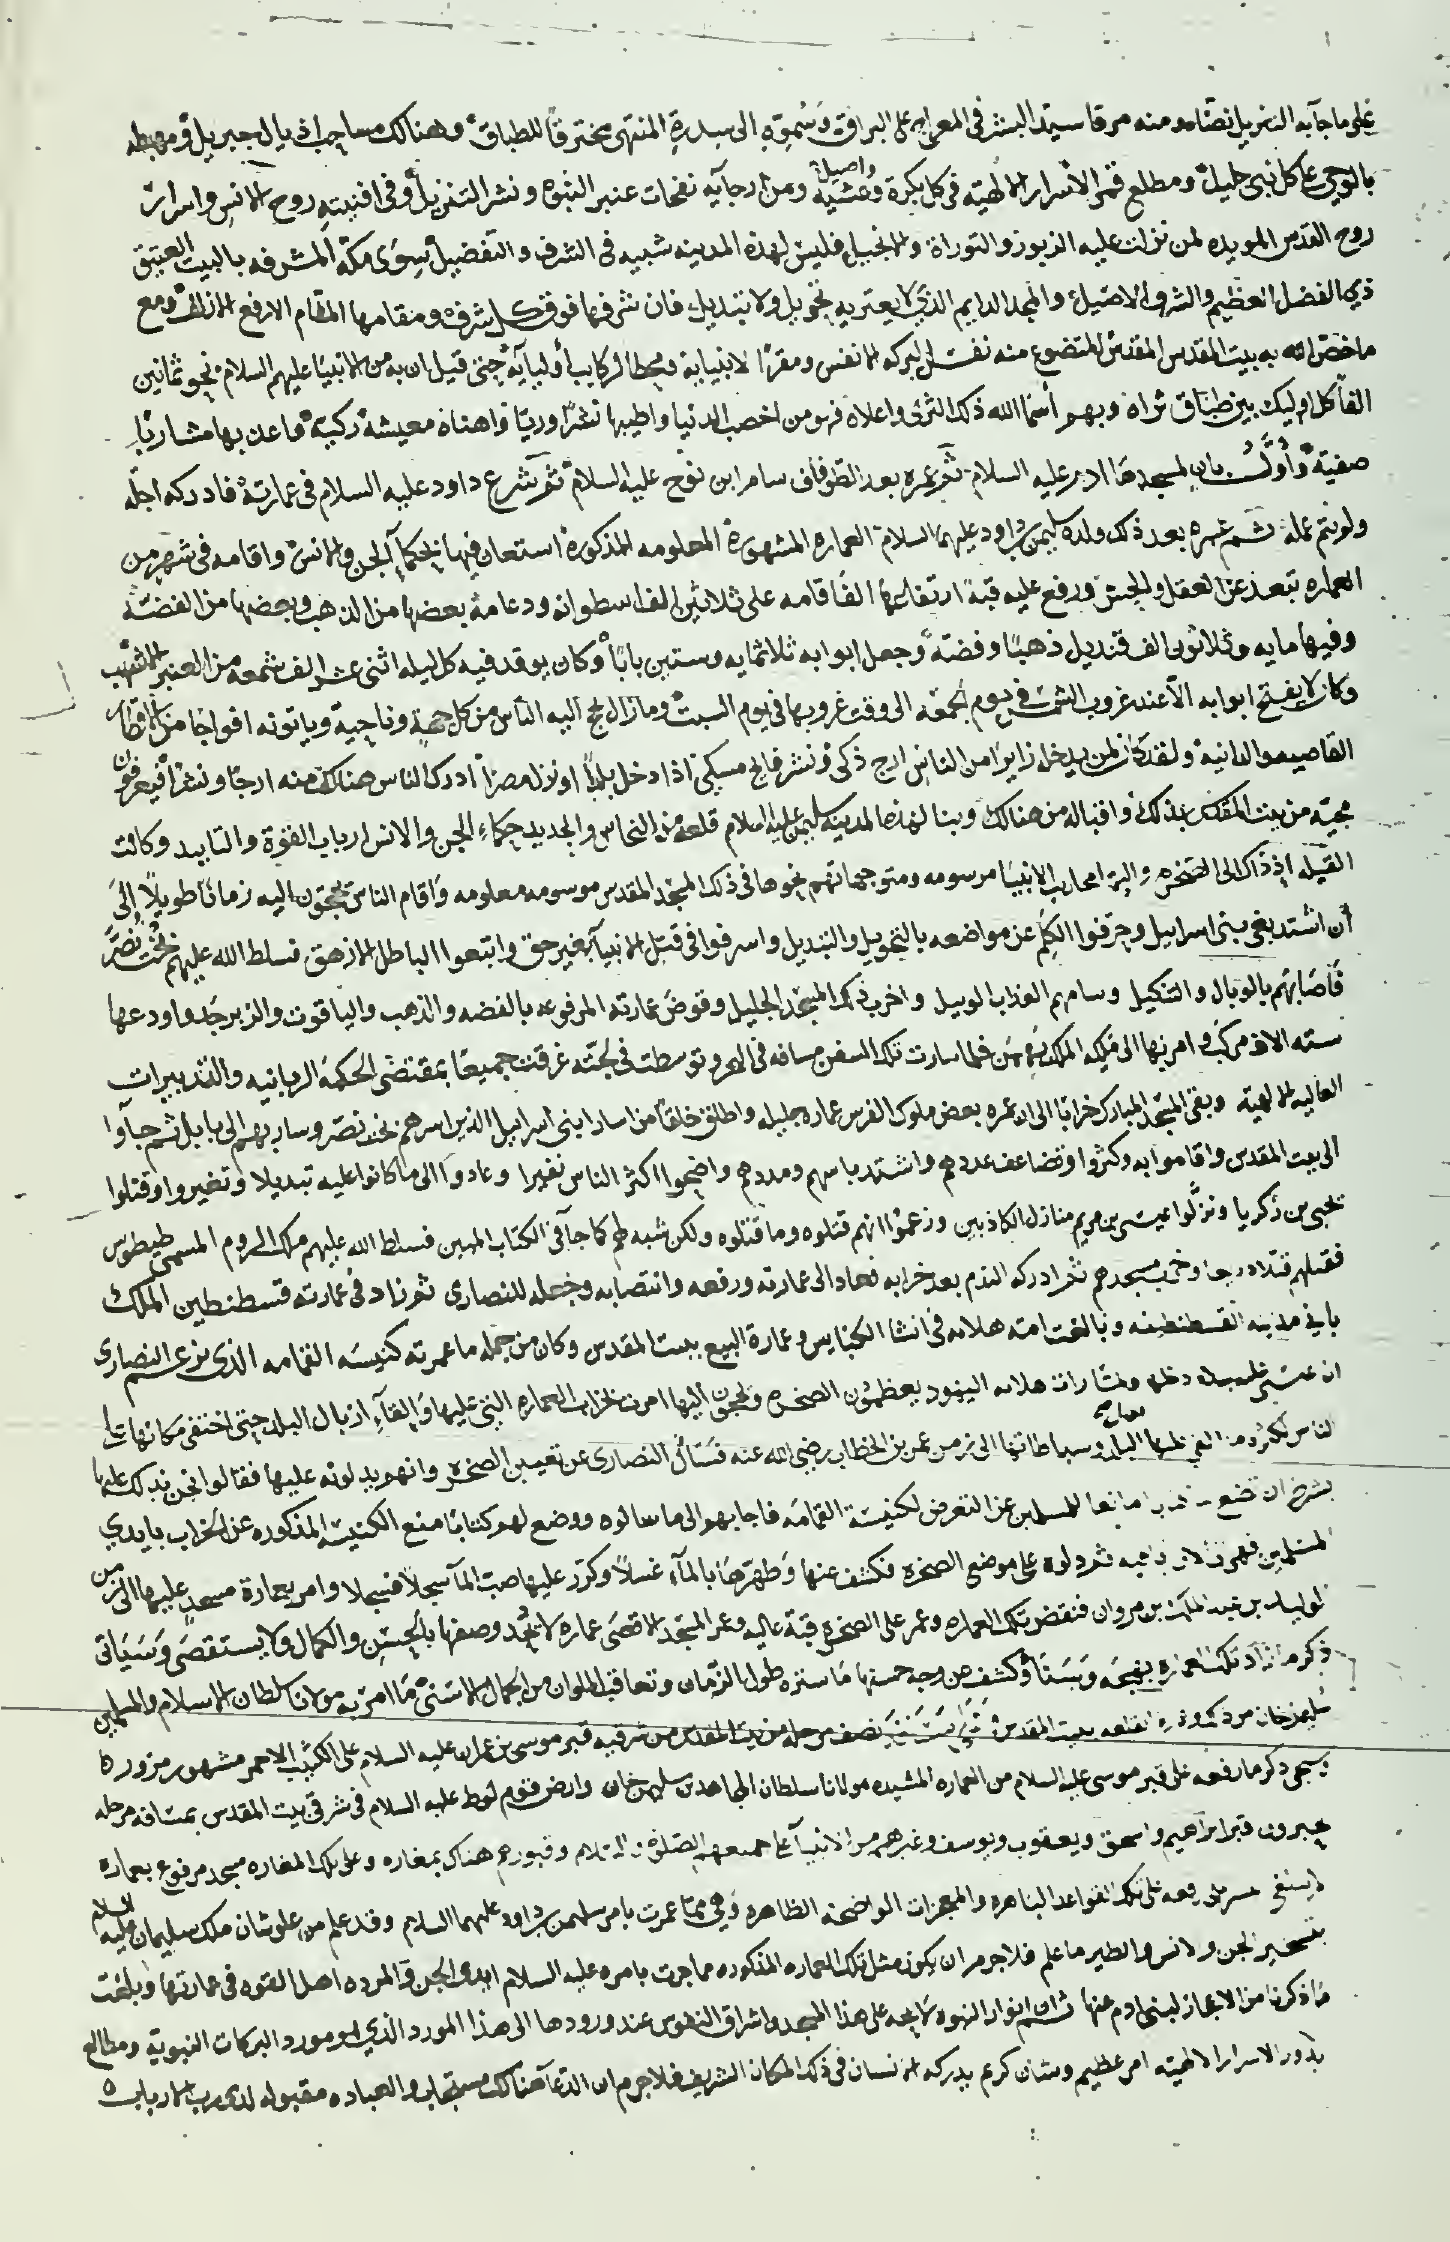 على ما جآ به التنزيل نصّا ومنه مرقا سيّد البشر فى المعراج على البراق وسُموّه الى سدرةِ المنتهى مخترقًا للطباق وهنالك مساحب اذيال جبريل ومهبطه
بالوحي على كل نبى جليل ومطلع قمر الأسرار الالهيّه فى كل بكرة وعشيّه واصيل ومن ارجآيه نفحات عنبر النبوه ونشر التنزيل وفى افنيته روح الانس واسرار
روح القدس المويده لمن نزلت عليه الزبور والتوراة والانجيل فليس لهذه المدينه شبيه فى الشرف والتفضيل سِوَى مكّة المشرفه بالبيت العتيق
ذي الفضل العظيم والشرف الاصيل والمجد الدايم الذي لا يعتريه تحويل ولا تبديل فان شرفها فوق كل شرف ومقامها المقام الارفع الازلف ومع
ما خصّ الله به بيت المقدس المقدّس المتضوع منه نفس البركه الانفس ومقرًا لانبيايه ومحطا لركايب أوليآيه حتى قيل ان به من الانبيا عليهم السلام نحو ثمانين
الفا كل اوليك بين طباق ثراه وبهم أسما الله ذلك الثرى واعلاه فهو من اخصب الدنيا واطيبها نشرًا وريّا واهناه معيشة زكية واعذبها مشاربًا
صفية وأوّل بانٍ لمسجدها ادم عليه السلام ثم عمره بعد الطوفان سام ابن نوح عليه السلام ثم شرع داود عليه السلام فى عمارته فادركه اجله
ولم يتم عمله ثم عمره بعد ذلك ولده سليمن بن داود عليهما السلام العماره المشهورة المعلومه المذكورة استعان فيها بحكمآ الجن والانس واقامه فى شهر من
العماره تبعد عن العقل والحس ورفع عليه قبة ارتفاعها الفا قامه على ثلاثين الف اسطوانه ودعامة بعضها من الذهب وبعضها من الفضّة
وفيها مايه وثلاثون الف قنديل ذهبًا وفضّة وجعل ابوابه ثلاثمايه وستين بابًا وكان يوقد فيه كل ليله اثنى عشر الف شمعه من العنبر الاشهب
وكان لا يفتح ابوابه الّا عند غروب الشمس فى يوم الجمعه الى وقت غروبها فى يوم السبت وما زال يحج اليه الناس من كل جهة وناحية وياتونه افواجا من الاقطار
القاصيه والدانيه ولقد كان لمن يدخله زايرًا من الناس ارج ذكى ونشر فايح مسكى اذا دخل بلدًا او نزل مصرًا ادرك الناس هنالك منه ارجًا ونشرًا فيعرفون
مجيّه من بيت المقدس بذلك واقباله من هنالك وبنا لهذه المدينه سليمن عليه السلام قلعه من النحاس والحديد حكماء الجن والانس ارباب القوة والتاييد وكانت
القبله اذ ذاك الى الصخره والتها محاريب الانبيا مرسومه ومتوجهاتهم نحوها فى ذلك المسجد المقدس موسومه معلومه وأقام الناس يحجون اليه زمانًا طويلًا إلى
أن اشتد بغى بنى اسراييل وحرّفوا الكلم عن مواضعه بالتحويل والتبديل واسرفوا فى قتل الانبيآ بغير حق واتبعوا الباطل الازهق فسلط الله عليهم بُخت نُصّر
فأصابهم بالوبال والتنكيل وسامهم العذاب الوبيل واخرب ذلك المسجد الجليل وقوض عمارته المرفوعه بالفضه والذهب والياقوت والزبرجد واودعها
سته الاف مركب وامر بها الى ملكه الملك بهمن فلما سارت تلك السفن مسافه فى البحر وتوسطت فى لجّته غرقت جميعًا بمقتضى الحكمة الربانيه والتدبيرات
العاليه الالهية وبقى المسجد المبارك خرابًا الى ان عمره بعض ملوك الفرس عماره جليله واطلق خلقًا من اسارا بنى اسراييل الذين اسرهم بخت نصر وسار بهم الى بابل ثم جآوا
الى بيت المقدس واقاموا به وكثروا وتضاعف عددهم واشتد باسهم ومددهم واضحوا اكثر الناس نفيرا وعادوا الى ما كانوا عليه تبديلا وتغييروا وقتلوا
يحيى بن زكريا ونزّلوا عيسى بن مريم منازل الكاذبين وزعموا انهم قتلوه وما قتلوه ولكن شبه لهم كما جآ فى الكتاب المبين فسلط الله عليهم ملك الروم المسمى طيطوس
فقتلهم قتلا ذريعا وخرب مسجدهم ثم ادركه الندم بعد خرابه فعاد الى عمارته ورفعه وانتصابه وجعله للنصارى ثم زاد فى عمارته قسطنطين الملك
بانى مدينه القسطنطينيه وبالغت امه هلانه فى انشا الكنايس وعمارة البيع ببيت المقدس وكان من جمله ما عمرته كنيسه القمامه الذى يزعم النصارى
ان عيسى عليه السلام دفنها ولمّا رات هلانه اليهود يعظمون الصخره ويحجون اليها امرت بخراب العماره التى عليها وإلقآء ازبال البلد حتى اختفى مكانها على
الناس لكثره ما القى عليها من ازبال البلد وسباطاتها الى زمن عمر بن الخطاب رضى الله عنه فسَأل النصارى عن تعيين الصخره وانهم يدلونه عليها فقالوا نحن ندلك عليها
بشرط ان تضع كتابا مانعا للمسلمين عن التعرض لكنيسة القمامه فاجابهم الى ما سالوه ووضع لهم كتابًا منع الكنيسه المذكوره عن الخراب بايدي
المسلمين ثم دلوه على موضع الصخره فكشف عنها وطهّرها بالمآء غسلًا وكرّر عليها صب المآ سجلًا فسجلا وامر بعمارة مسجد عليها الى زمن
الوليد بن عبد الملك بن مروان فنقض تلك العماره وعمر على الصخره قبة عاليه وعمر المسجد الاقصى عماره لا يُحد وصفها بالحسن والكمال ولا يستقصى وسَيأتى
ذكر ما زاد تلك العماره بهجه وسَنًا وكشف عن وجه حسنها ما ستره طول الزمان وتعاقب الملوان من الجمال الاسَنى ما امر به مولانا سلطان الاسلام والمسلمين
سليمن خان بيت المقدس نصف مرحله من بيت المقدس من شرقيه قبر موسى بن عمران عليه السلام على الكثيب الاحمر مشهور مزور ها
وسيجى ذكر ما رفعه على قبر موسى عليه السلام من العماره المشيده مولانا سلطان المجاهدين سليمن خان وارض قوم لوط عليه السلام فى شرقى بيت المقدس بمسافه مرحله
حبرون قبر ابراهيم واسحق ويعقوب ويوسف وغيرهم من الانبيآ على جميعهم الصلوة والسلام وقبورهم هناك بمغاره وعلى تلك المغاره مسجد مرفوع بعماره
على تلك القواعد الباهره والمعجزات الواضحه الظاهره وهى مما عمرت بامر سليمن بن داود عليهما السلام وقد علم من علو شان ملك سليمان عليه السلام
بتسخير الجن والانس والطير ما علم فلا جرم ان يكون مثل تلك العماره المذكوره مما جرت بامره عليه السلام ايدى الجن والمرده اهل القوه فى عمارتها وبلغت
ما ذكرنا من الاعجاز لبنى ادم عنها ثم ان انوار النبوه لايحه على هذا المسجد واشراق النفوس عند ورودها الى هذا المورد الذي هو مورد البركات النبوية ومطالع
بدور الاسرار الالهيّه امر عظيم وشان كريم يدركه الانسان فى ذلك المكان الشريف فلا جرم ان الدعآ هنالك مستجاب والعباده مقبوله لدى رب الارباب ٥